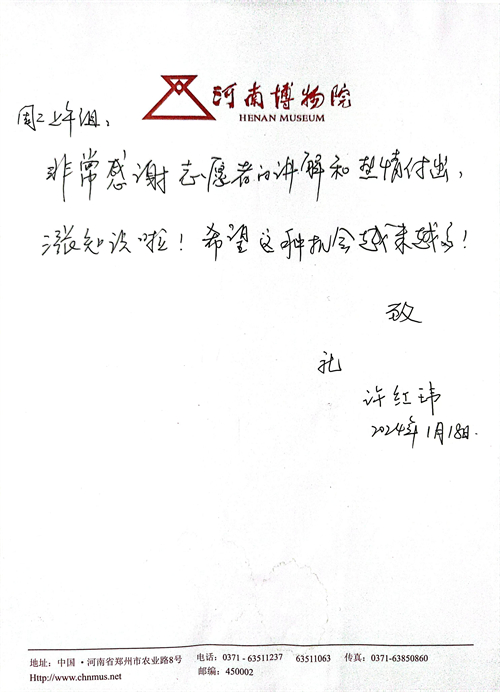 河南博物院
HENAN MUSEUM
周二上午组：
非常感谢志愿者的讲解和热情付出，
涨知识啦！希望这种机会越来越多！
致
礼
许红玮
2024年1月18日.
地址：中国·河南省郑州市农业路8号 电话：0371-63511237 63511063 传真：0371-63850860
Http://www.chnmus.net 邮编：450002